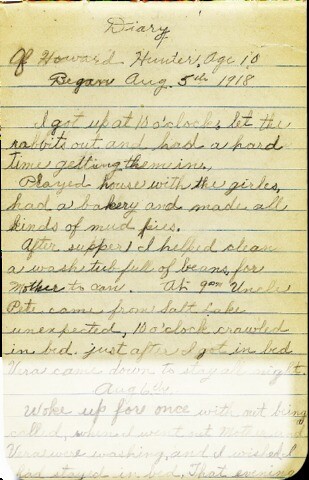 Diary
Of Howard Hunter, Age 10
Began Aug. 5th 1918
I got up at 10 o'clock let the
rabbits out and had a hard
time getting them in.
Played house with the girles,
had a bakery and made all
kinds of mud pies.
After supper I helped clean
a washtub full of beans for
Mother to can. At 9pm Uncle
Pete came from Salt Lake
unexpected, 10 o'clock crawled
in bed. just after I got in bed
Veras came down to stay all night.
Aug 6th
Woke up fore once with out being
called, when I went out Mother and
Vera were washing, and I wished I
had stayed in bed, That evening